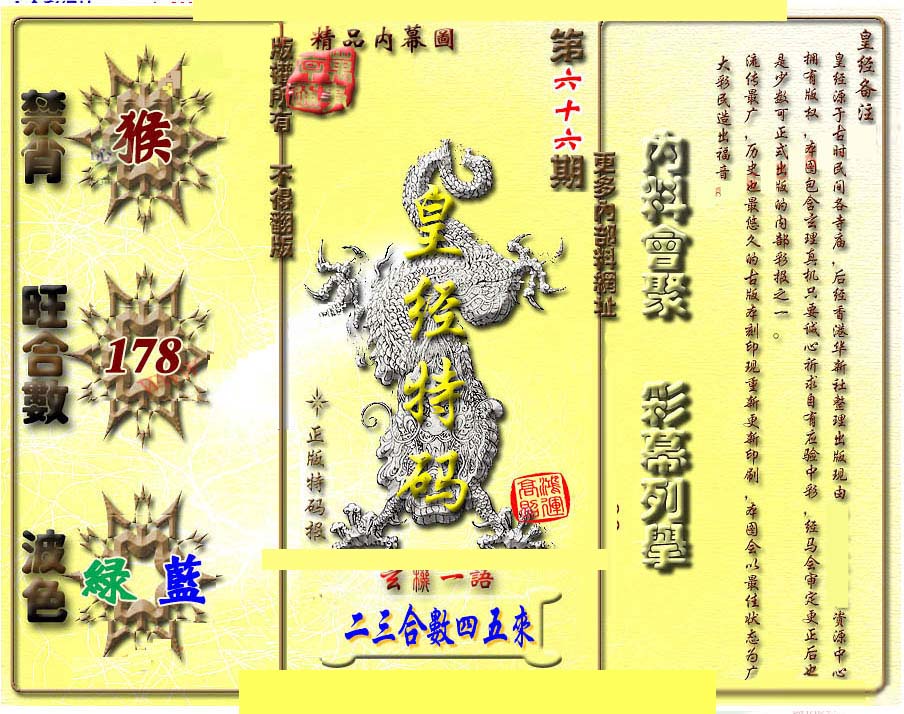 精品内幕圖
版權所有 不得翻版
第六十六期
更多内部料網址
禁肖
猴
旺合數
178
波色
綠 藍
皇经特码
正版特码报
鴻運高照
玄機一語
二三合數四五來
内料會聚 彩幕列舉
皇经备注
皇经源于古时民间各寺庙，后经香港华新社整理出版现由 资源中心
拥有版权，本图包含玄理真机只要诚心祈求自有应验中彩，经马会审定更正后也
是少数可正式出版的内部彩报之一。
流传最广，历史也最悠久的古版本刻印现重新更新印刷，本图会以最佳状态为广
大彩民造出福音